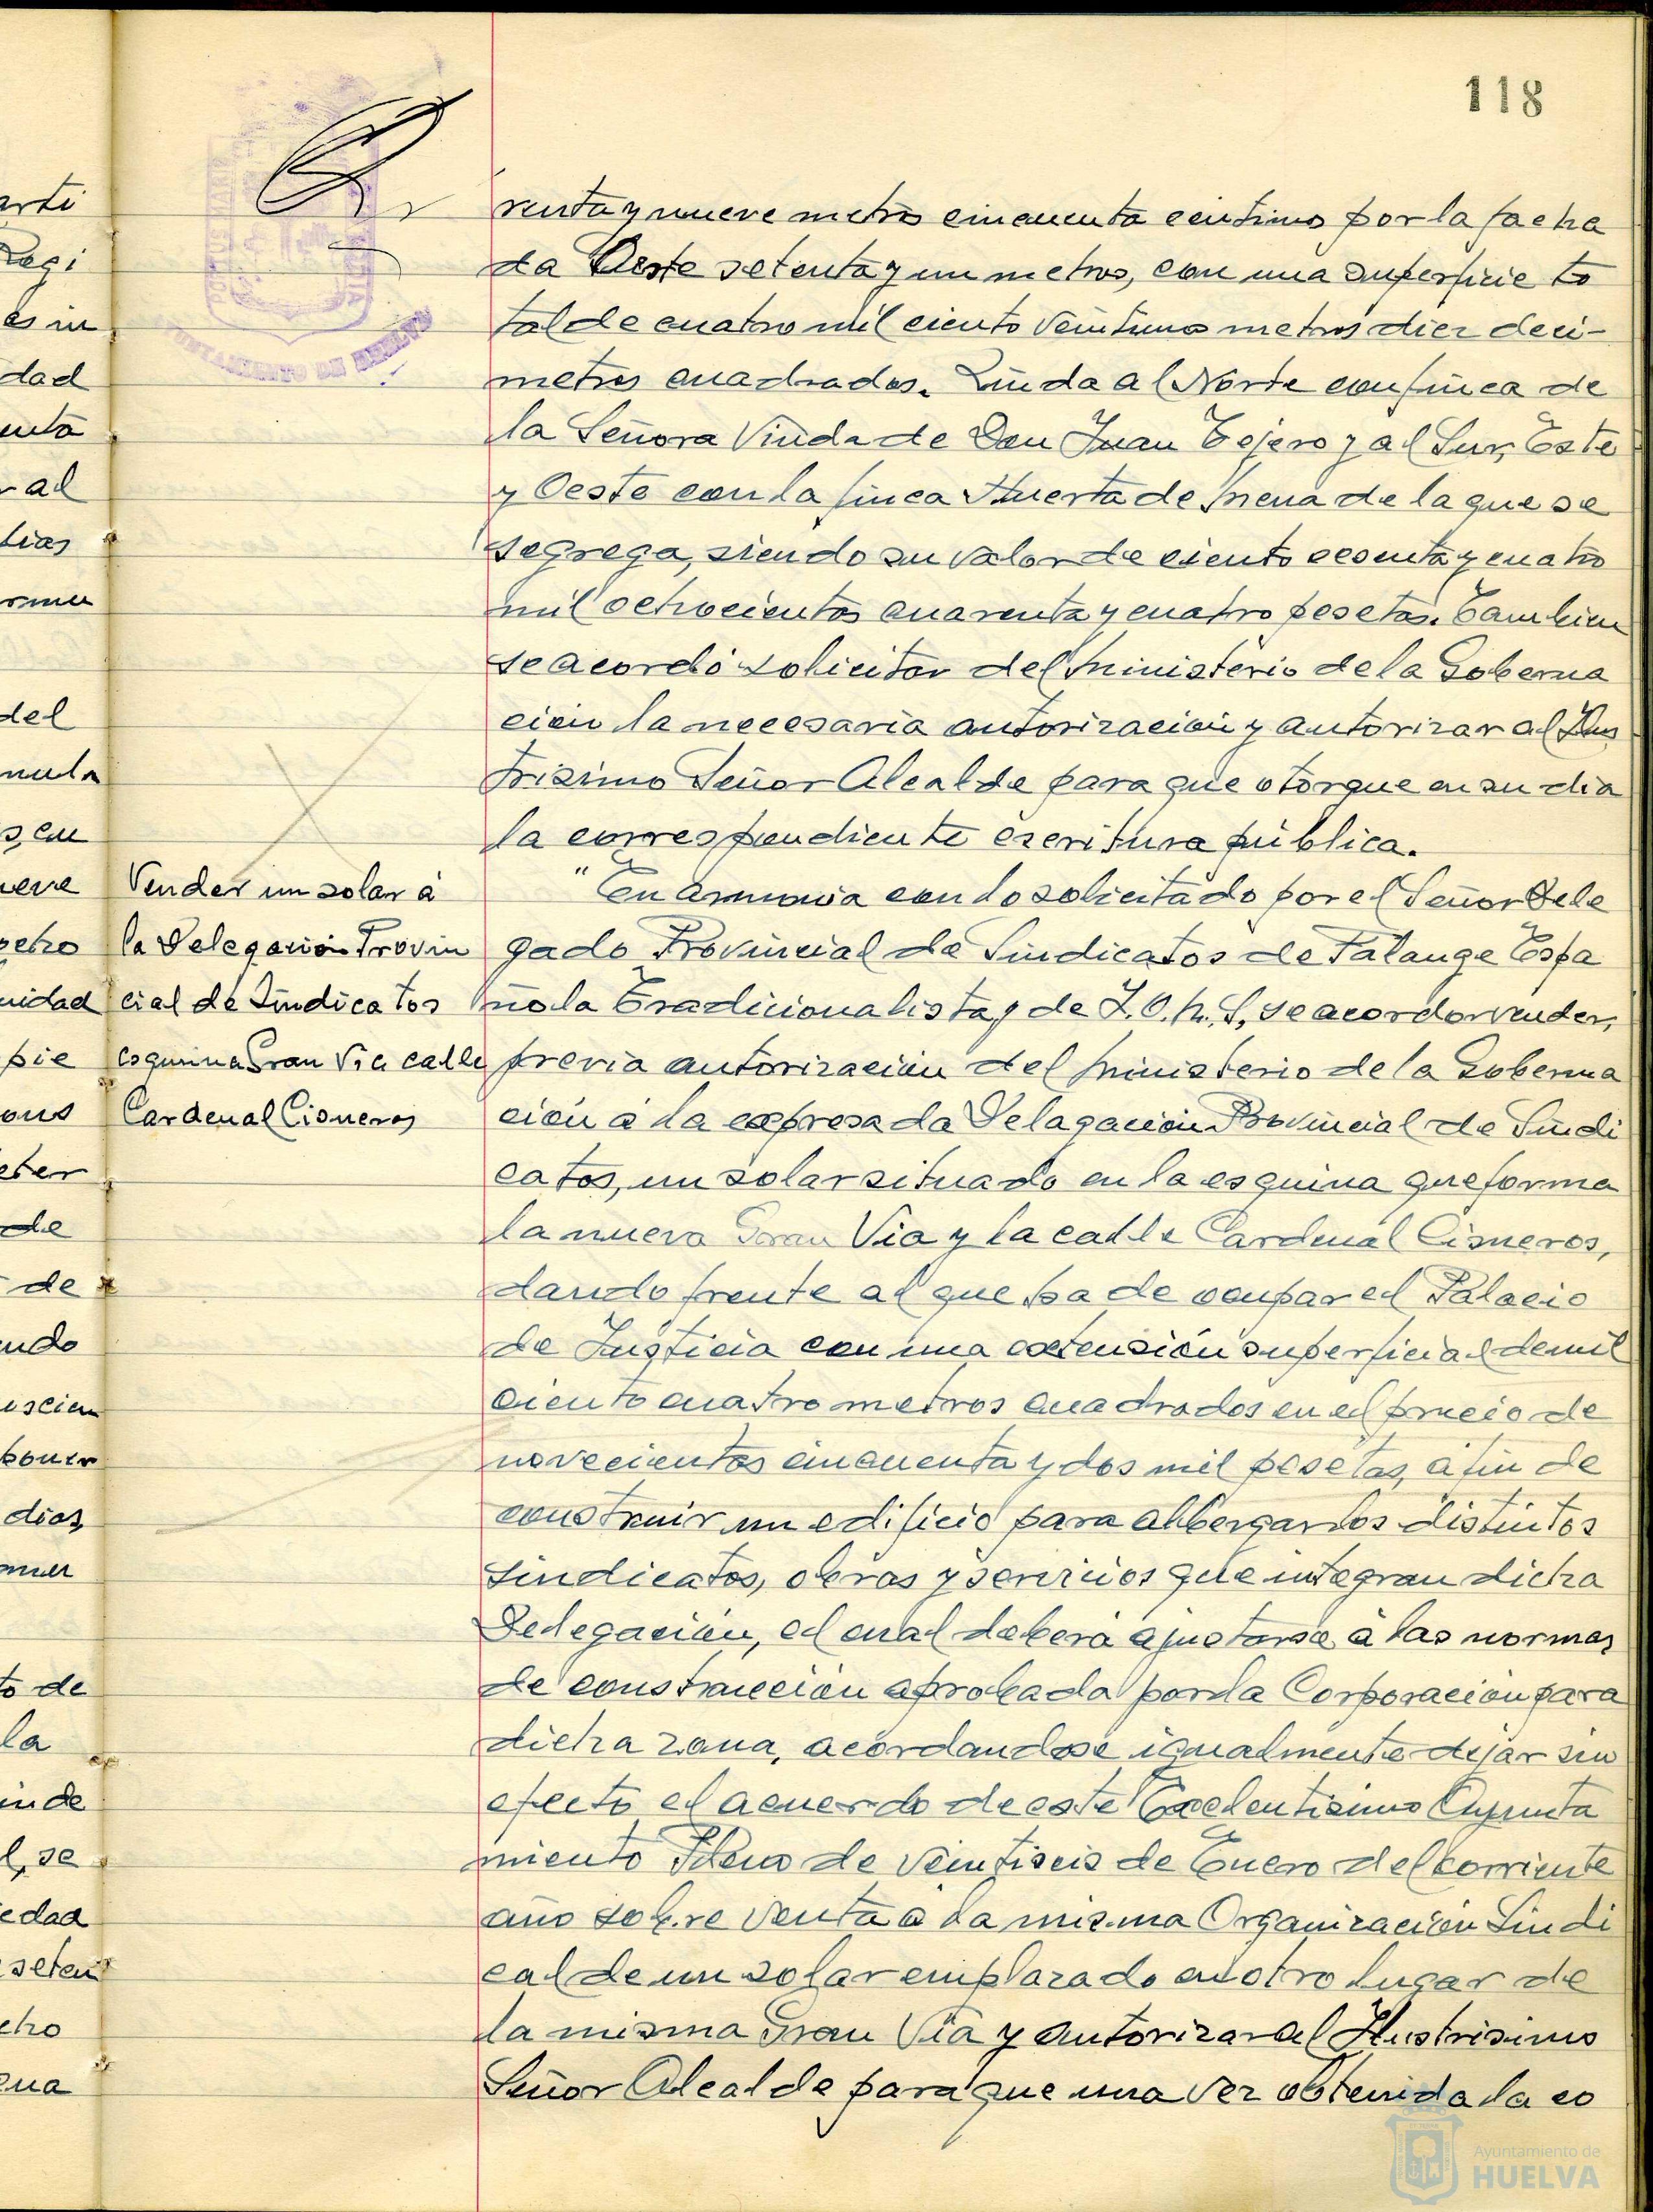 118
renta y nueve metros cincuenta centimos por la facha
da Oeste setenta y un metros, con una superficie to
tal de cuatro mil ciento veintiuno metros diez deci-
metros cuadrados. Linda al Norte con finca de
la Señora Viuda de Don Juan Tejero y al Sur, Este
y Oeste con la finca Huerta de Mena de la que se
segrega, siendo su valor de ciento sesenta y cuatro
mil ochocientos cuarenta y cuatro pesetas. Tambien
se acordó solicitar del Ministerio de la Goberna
ción la necesaria autorización y autorizar al Ilus
trisimo Señor Alcalde para que otorgue en su dia
la correspondiente escritura pública.
Vender un solar á
la Delegación Provin
cial de Sindicatos
esquina Gran Via calle
Cardenal Cisneros
"En armonia con lo solicitado por el Señor Dele
gado Provincial de Sindicatos de Falange Espa
ñola Tradicionalista y de J.O.N.S, se acordo vender,
previa autorización del Ministerio de la Goberna
ción á la expresada Delagación Provincial de Sindi
catos, un solar situado en la esquina que forma
la nueva Gran Via y la calle Cardenal Cisneros,
dando frente al que ha de ocupar el Palacio
de Justicia con una extensión superficial de mil
ciento cuatro metros cuadrados en el precio de
novecientas cincuenta y dos mil pesetas, á fin de
construir un edificio para albergar los distintos
Sindicatos, obras y servicios que integran dicha
Delegación, el cual deberá ajustarse á las normas
de construcción aprobada por la Corporación para
dicha zona, acordandose igualmente dejar sin
efecto el acuerdo de este Excelentisimo Ayunta
miento Pleno de veintiseis de Enero del corriente
año sobre venta á la misma Organización Sindi
cal de un solar emplazado en otro lugar de
la misma Gran Via y autorizar al Ilustrisimo
Señor Alcalde para que una vez obtenida la co
Ayuntamiento de
HUELVA